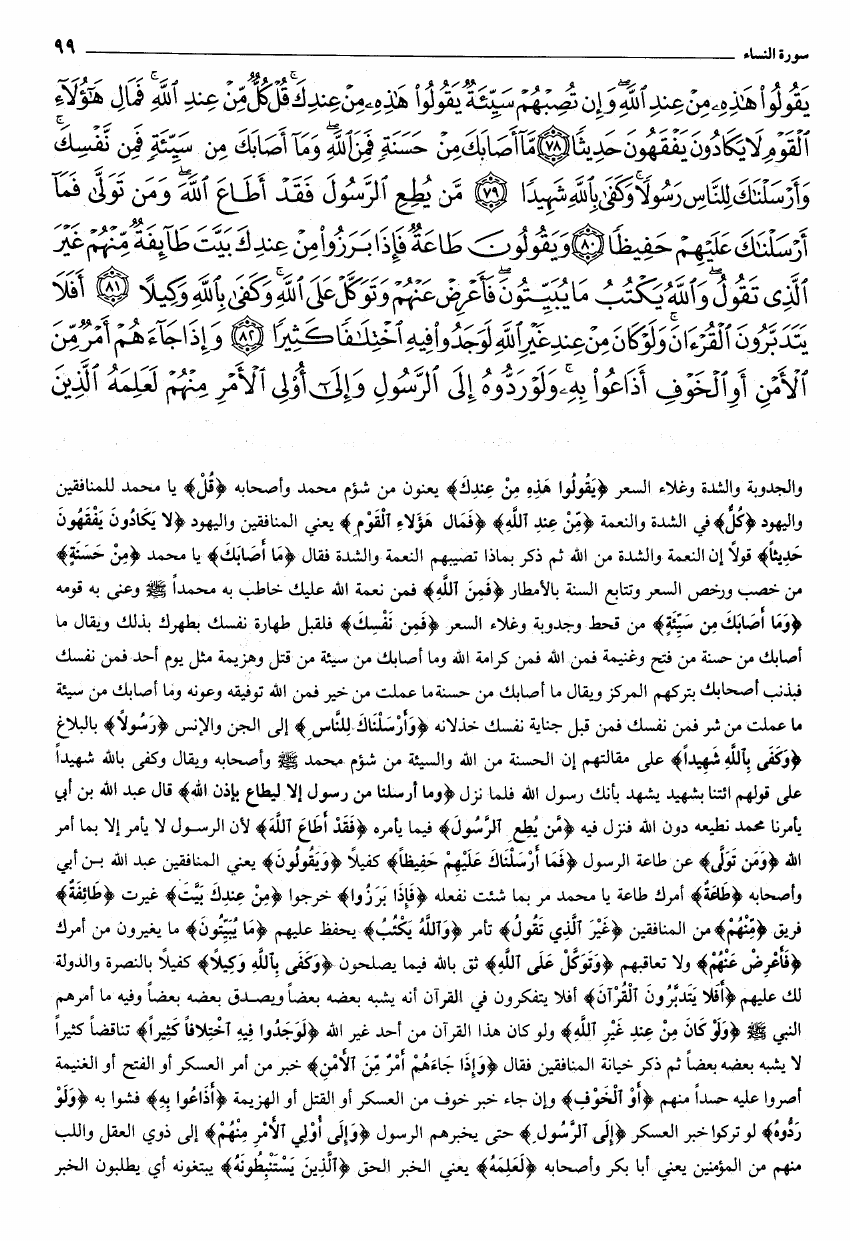 سورة النساء ٩٩
يَقُولُوا۟ هَٰذِهِۦ مِنْ عِندِ ٱللَّهِ ۖ وَإِن تُصِبْهُمْ سَيِّئَةٌ يَقُولُوا۟ هَٰذِهِۦ مِنْ عِندِكَ ۚ قُلْ كُلٌّ مِّنْ عِندِ ٱللَّهِ ۖ فَمَالِ هَٰٓؤُلَآءِ
ٱلْقَوْمِ لَا يَكَادُونَ يَفْقَهُونَ حَدِيثًا ٧٨ مَّآ أَصَابَكَ مِنْ حَسَنَةٍ فَمِنَ ٱللَّهِ ۖ وَمَآ أَصَابَكَ مِن سَيِّئَةٍ فَمِن نَّفْسِكَ ۚ
وَأَرْسَلْنَٰكَ لِلنَّاسِ رَسُولًا ۚ وَكَفَىٰ بِٱللَّهِ شَهِيدًا ٧٩ مَّن يُطِعِ ٱلرَّسُولَ فَقَدْ أَطَاعَ ٱللَّهَ ۖ وَمَن تَوَلَّىٰ فَمَآ
أَرْسَلْنَٰكَ عَلَيْهِمْ حَفِيظًا ٨٠ وَيَقُولُونَ طَاعَةٌ فَإِذَا بَرَزُوا۟ مِنْ عِندِكَ بَيَّتَ طَآئِفَةٌ مِّنْهُمْ غَيْرَ
ٱلَّذِى تَقُولُ ۖ وَٱللَّهُ يَكْتُبُ مَا يُبَيِّتُونَ ۖ فَأَعْرِضْ عَنْهُمْ وَتَوَكَّلْ عَلَى ٱللَّهِ ۚ وَكَفَىٰ بِٱللَّهِ وَكِيلًا ٨١ أَفَلَا
يَتَدَبَّرُونَ ٱلْقُرْءَانَ ۚ وَلَوْ كَانَ مِنْ عِندِ غَيْرِ ٱللَّهِ لَوَجَدُوا۟ فِيهِ ٱخْتِلَٰفًا كَثِيرًا ٨٢ وَإِذَا جَآءَهُمْ أَمْرٌ مِّنَ
ٱلْأَمْنِ أَوِ ٱلْخَوْفِ أَذَاعُوا۟ بِهِۦ ۖ وَلَوْ رَدُّوهُ إِلَى ٱلرَّسُولِ وَإِلَىٰٓ أُو۟لِى ٱلْأَمْرِ مِنْهُمْ لَعَلِمَهُ ٱلَّذِينَ
والجدوبة والشدة وغلاء السعر ﴿يَقُولُوا هَذِهِ مِنْ عِندِكَ﴾ يعنون من شؤم محمد وأصحابه ﴿قُلْ﴾ يا محمد للمنافقين
واليهود ﴿كُلٌّ﴾ في الشدة والنعمة ﴿مِّنْ عِندِ ٱللَّهِ﴾ ﴿فَمَال هَؤُلاءِ ٱلْقَوْمِ﴾ يعني المنافقين واليهود ﴿لا يَكَادُونَ يَفْقَهُونَ
حَدِيثاً﴾ قولاً إن النعمة والشدة من الله ثم ذكر بماذا تصيبهم النعمة والشدة فقال ﴿مَا أَصَابَكَ﴾ يا محمد ﴿مِنْ حَسَنَةٍ﴾
من خصب ورخص السعر وتتابع السنة بالأمطار ﴿فَمِنَ ٱللَّهِ﴾ فمن نعمة الله عليك خاطب به محمداً ﷺ وعنى به قومه
﴿وَمَا أَصَابَكَ مِن سَيِّئَةٍ﴾ من قحط وجدوبة وغلاء السعر ﴿فَمِن نَفْسِكَ﴾ فلقبل طهارة نفسك بطهرك بذلك ويقال ما
أصابك من حسنة من فتح وغنيمة فمن الله فمن كرامة الله وما أصابك من سيئة من قتل وهزيمة مثل يوم أحد فمن نفسك
فبذنب أصحابك بتركهم المركز ويقال ما أصابك من حسنة ما عملت من خير فمن الله توفيقه وعونه وما أصابك من سيئة
ما عملت من شر فمن نفسك فمن قبل جناية نفسك خذلانه ﴿وَأَرْسَلْنَاكَ لِلنَّاسِ﴾ إلى الجن والإنس ﴿رَسُولاً﴾ بالبلاغ
﴿وَكَفَى بِٱللَّهِ شَهِيداً﴾ على مقالتهم إن الحسنة من الله والسيئة من شؤم محمد ﷺ وأصحابه ويقال وكفى بالله شهيداً
على قولهم ائتنا بشهيد يشهد بأنك رسول الله فلما نزل ﴿وما أرسلنا من رسول إلا ليطاع بإذن الله﴾ قال عبد الله بن أبي
يأمرنا محمد نطيعه دون الله فنزل فيه ﴿مَّن يُطِعِ ٱلرَّسُولَ﴾ فيما يأمره ﴿فَقَدْ أَطَاعَ ٱللَّهَ﴾ لأن الرسول لا يأمر إلا بما أمر
الله ﴿وَمَن تَوَلَّى﴾ عن طاعة الرسول ﴿فَمَا أَرْسَلْنَاكَ عَلَيْهِمْ حَفِيظاً﴾ كفيلاً ﴿وَيَقُولُونَ﴾ يعني المنافقين عبد الله بن أبي
وأصحابه ﴿طَاعَةٌ﴾ أمرك طاعة يا محمد مر بما شئت نفعله ﴿فَإِذَا بَرَزُوا﴾ خرجوا ﴿مِنْ عِندِكَ بَيَّتَ﴾ غيرت ﴿طَائِفَةٌ﴾
فريق ﴿مِّنْهُمْ﴾ من المنافقين ﴿غَيْرَ ٱلَّذِي تَقُولُ﴾ تأمر ﴿وَٱللَّهُ يَكْتُبُ﴾ يحفظ عليهم ﴿مَا يُبَيِّتُونَ﴾ ما يغيرون من أمرك
﴿فَأَعْرِضْ عَنْهُمْ﴾ ولا تعاقبهم ﴿وَتَوَكَّلْ عَلَى ٱللَّهِ﴾ ثق بالله فيما يصلحون ﴿وَكَفَى بِٱللَّهِ وَكِيلاً﴾ كفيلاً بالنصرة والدولة
لك عليهم ﴿أَفَلا يَتَدَبَّرُونَ ٱلْقُرْآنَ﴾ أفلا يتفكرون في القرآن أنه يشبه بعضه بعضاً ويصدق بعضه بعضاً وفيه ما أمرهم
النبي ﷺ ﴿وَلَوْ كَانَ مِنْ عِندِ غَيْرِ ٱللَّهِ﴾ ولو كان هذا القرآن من أحد غير الله ﴿لَوَجَدُوا فِيهِ ٱخْتِلافاً كَثِيراً﴾ تناقضاً كثيراً
لا يشبه بعضه بعضاً ثم ذكر خيانة المنافقين فقال ﴿وَإِذَا جَاءَهُمْ أَمْرٌ مِّنَ الأَمْنِ﴾ خبر من أمر العسكر أو الفتح أو الغنيمة
أصروا عليه حسداً منهم ﴿أَوْ ٱلْخَوْفِ﴾ وإن جاء خبر خوف من العسكر أو القتل أو الهزيمة ﴿أَذَاعُوا بِهِ﴾ فشوا به ﴿وَلَوْ
رَدُّوهُ﴾ لو تركوا خبر العسكر ﴿إِلَى ٱلرَّسُولِ﴾ حتى يخبرهم الرسول ﴿وَإِلَى أُوْلِي ٱلأَمْرِ مِنْهُمْ﴾ إلى ذوي العقل واللب
منهم من المؤمنين يعني أبا بكر وأصحابه ﴿لَعَلِمَهُ﴾ يعني الخبر الحق ﴿ٱلَّذِينَ يَسْتَنْبِطُونَهُ﴾ يبتغونه أي يطلبون الخبر